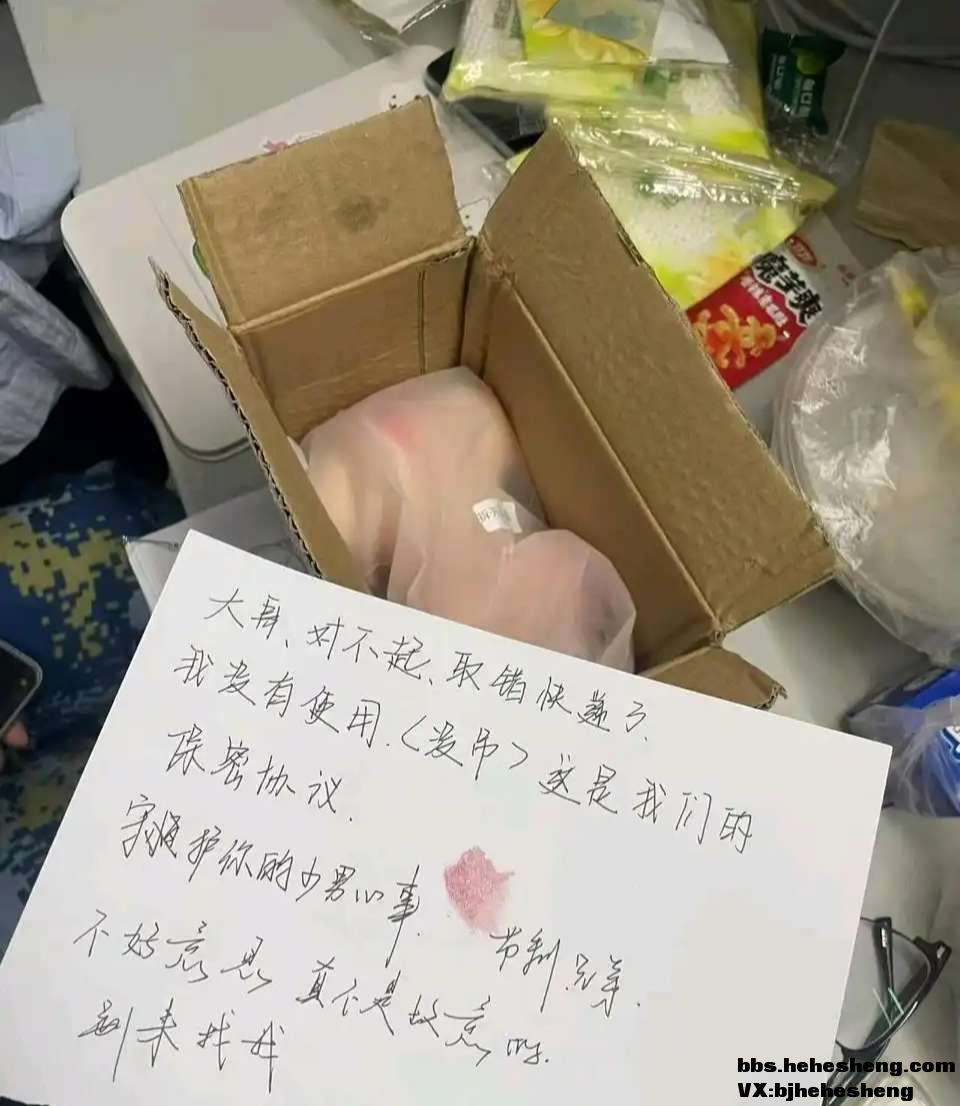 魔芋爽
大哥、对不起、取错快递了、
我没有使用.(没吊)这是我们的
保密协议.
守护你的少男心事.
节制.兄弟.
不好意思 真不是故意的.
别来找我
bbs.hehesheng.com
VX:bjhehesheng